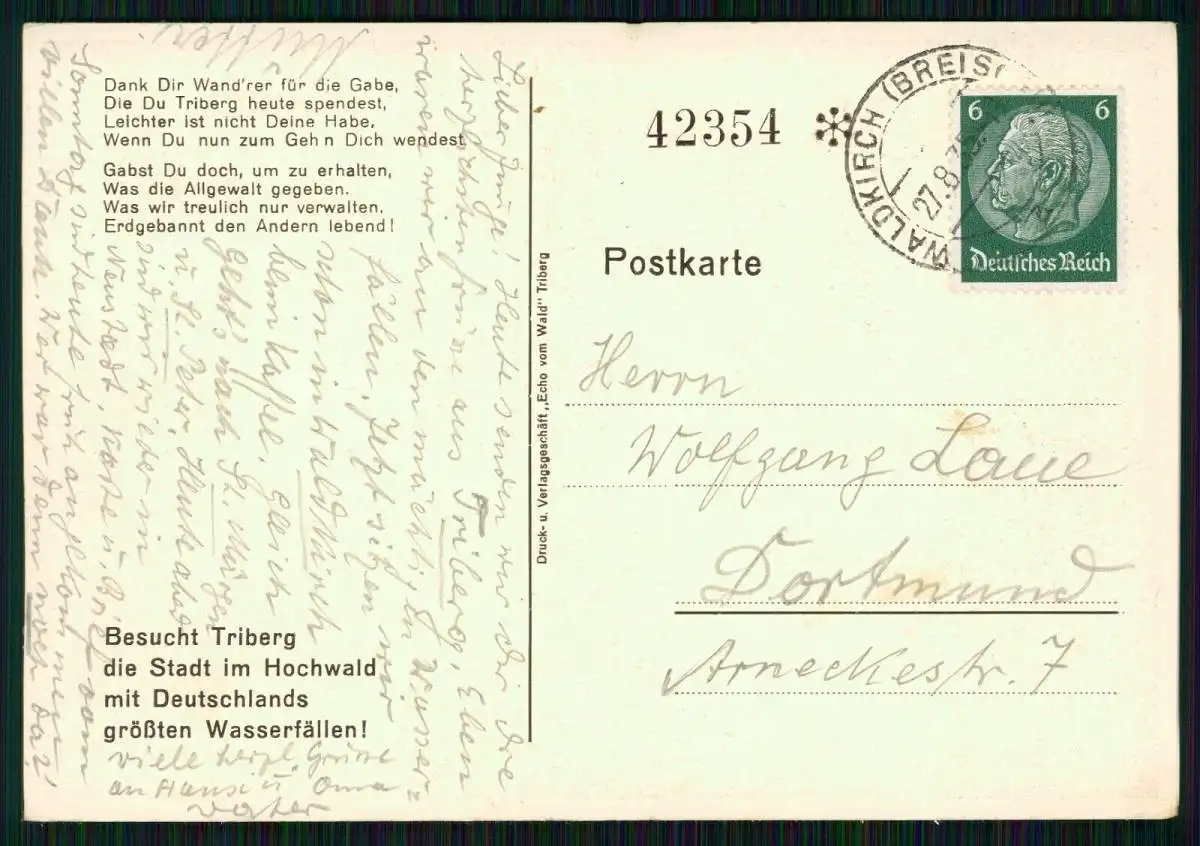 Dank Dir Wand'rer für die Gabe,
Die Du Triberg heute spendest,
Leichter ist nicht Deine Habe,
Wenn Du nun zum Geh n Dich wendest.
Gabst Du doch, um zu erhalten,
Was die Allgewalt gegeben.
Was wir treulich nur verwalten,
Erdgebannt den Andern lebend!
Besucht Triberg
die Stadt im Hochwald
mit Deutschlands
größten Wasserfällen!
Lieber Junge! Heute senden wir Dir die
herzlichsten Grüsse aus Triberg. Eben
waren wir an den mächtigen Wasser=
fällen. Jetzt sitzen wir
schon in Waldkirch
beim Kaffee. Gleich
geht's nach St. Märgen
u. St. Peter. Heute abend
sind wir wieder in
Neustadt. Karte u. Brief vom
Samstag sind heute früh angekommen
vielen Dank. Wer war denn noch da?
Mutter.
viele herzl. Grüsse
an Hansi u Oma
Vater
Druck- u. Verlagsgeschäft „Echo vom Wald" Triberg
42354 ✻
WALDKIRCH (BREISG
27.8.35
6 6
Deutsches Reich
Postkarte
Herrn
Wolfgang Laue
Dortmund
Arneckestr. 7